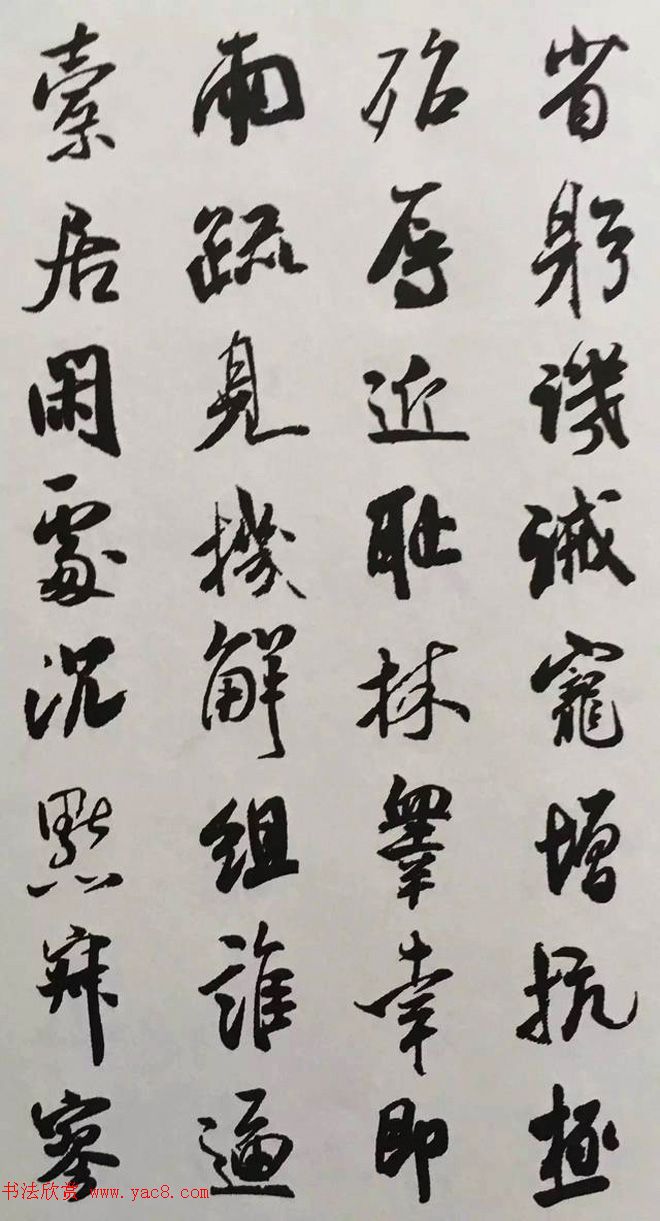 省躬譏誡寵增抗極
殆辱近耻林睾幸即
兩疏見機解組誰逼
索居閑處沉默寂寥
书法欣赏 www.yac8.com